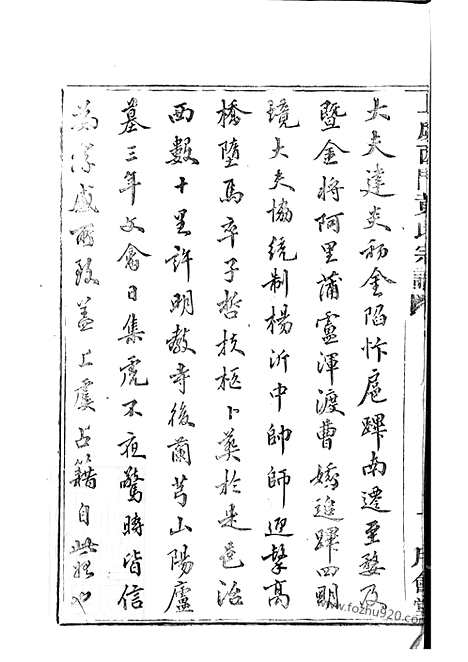 大夫達炎初金陷忭扈蹕南遷至婺及
暨金將阿里蒲盧渾渡曹娥追蹕四明
境大夫協統制楊沂中帥師迎擊高
橋墮馬卒子哲扶柩卜葬於是邑治
西數十里許明教寺後蘭芎山陽廬
墓三年文禽日集虎不夜驚時皆信
為孝感所致蓋上虞占籍自此始也
上虞西門黃氏宗譜
www.fozhu920.com